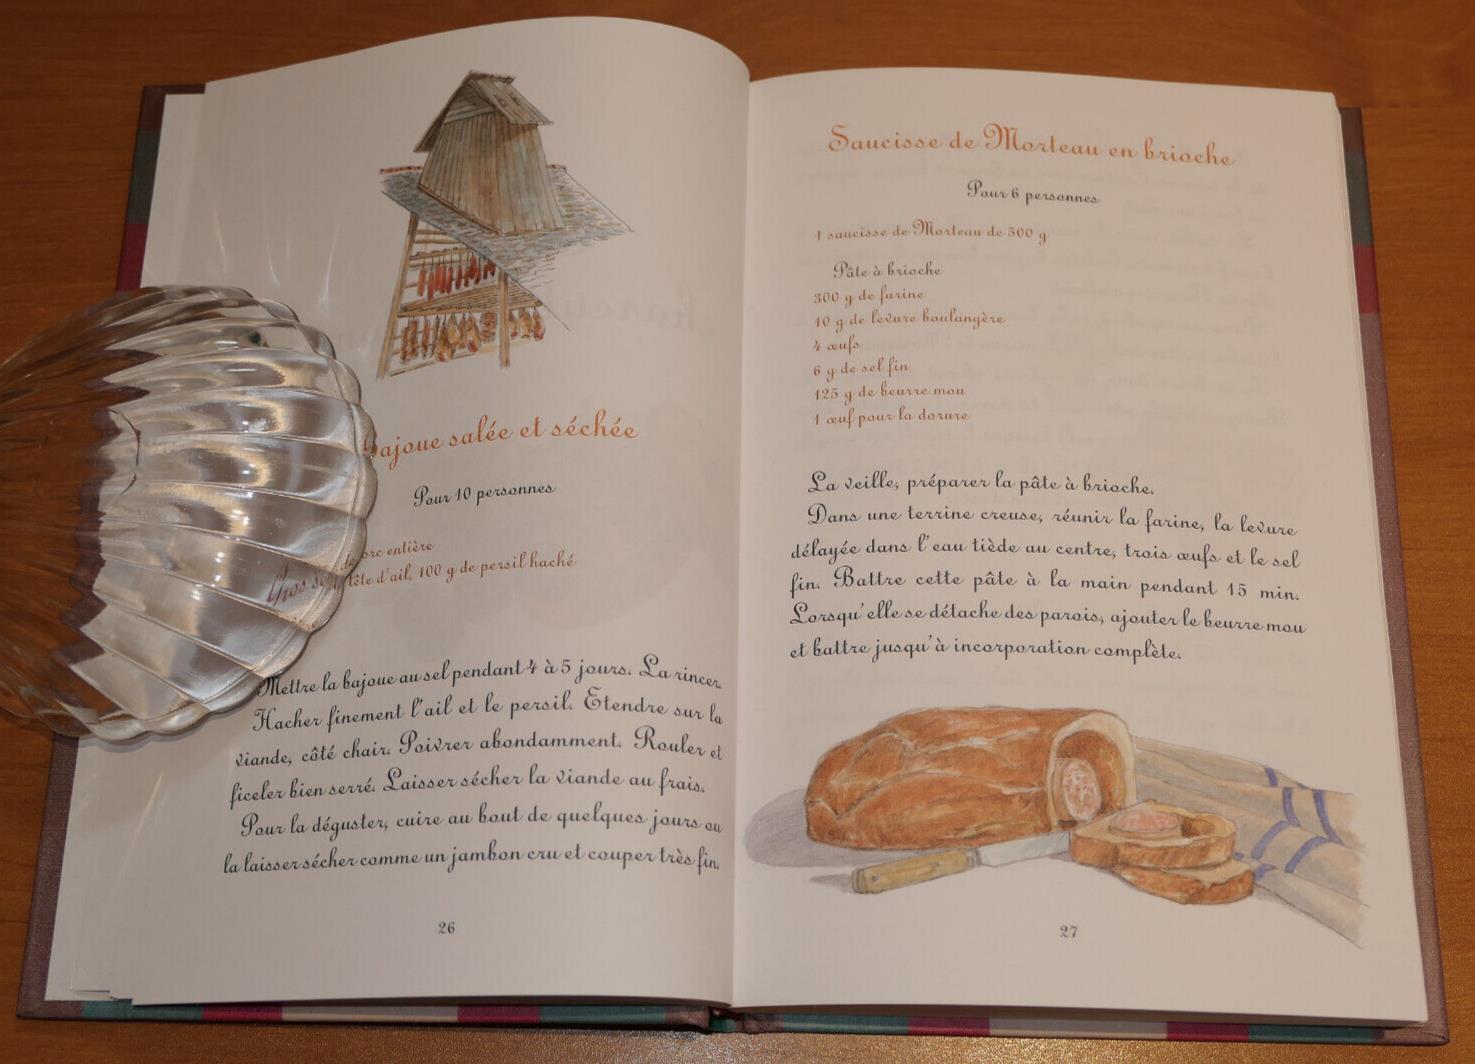 Bajoue salée et séchée
Pour 10 personnes
de porc entière
Gros sel, tête d'ail, 100 g de persil haché
Mettre la bajoue au sel pendant 4 à 5 jours. La rincer.
Hacher finement l'ail et le persil. Etendre sur la
viande, côté chair. Poivrer abondamment. Rouler et
ficeler bien serré. Laisser sécher la viande au frais.
Pour la déguster, cuire au bout de quelques jours ou
la laisser sécher comme un jambon cru et couper très fin.
26
Saucisse de Morteau en brioche
Pour 6 personnes
1 saucisse de Morteau de 500 g
Pâte à brioche
300 g de farine
10 g de levure boulangère
4 œufs
6 g de sel fin
125 g de beurre mou
1 œuf pour la dorure
La veille, préparer la pâte à brioche.
Dans une terrine creuse, réunir la farine, la levure
délayée dans l'eau tiède au centre, trois œufs et le sel
fin. Battre cette pâte à la main pendant 15 min.
Lorsqu'elle se détache des parois, ajouter le beurre mou
et battre jusqu'à incorporation complète.
27